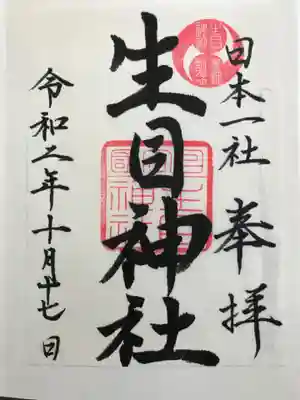 日本一社 奉拝
生目神社
令和二年十月廿七日